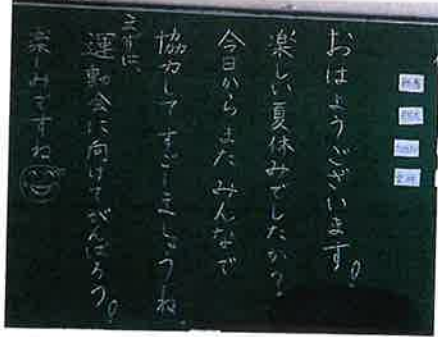 おはようございます!
楽しい夏休みでしたか?
今日からまたみんなで
協力してすごしましょうね。
まずは、
運動会に向けてがんばろう!
楽しみですね